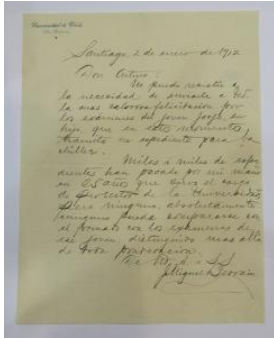 Universidad de Chile
Santiago, 2 de enero de 1912
Don Arturo:
No puedo resistir a
la necesidad de enviarle a Ud.
la mas calorosa felicitacion por
los exámenes del joven Jorge, su
hijo que en estos momentos
tramita su expediente para ba-
chiller.
Miles i miles de espe-
dientes han pasado por mi mano
en 25 años que sirvo el cargo
de Prosecretario de la Universidad,
Pero ninguno, absolutamente
ninguno puede compararse con
el formado con los exámenes de
ese joven, distinguido mas allá
de toda ponderacion.
De Ud. A. i S.S.
J. Miguel Besoain